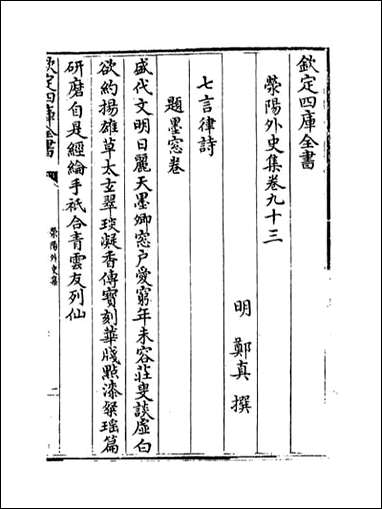 欽定四庫全書
滎陽外史集卷九十三
明 鄭真 撰
七言律詩
題墨窓卷
盛代文明日麗天墨卿窓户愛窮年未容莊叟談虛白
欲約揚雄草太玄翠琰凝香傳寳刻華牋點漆粲瑶篇
研磨自是經綸手祇合青雲友列仙
欽定四庫全書
滎陽外史集
一